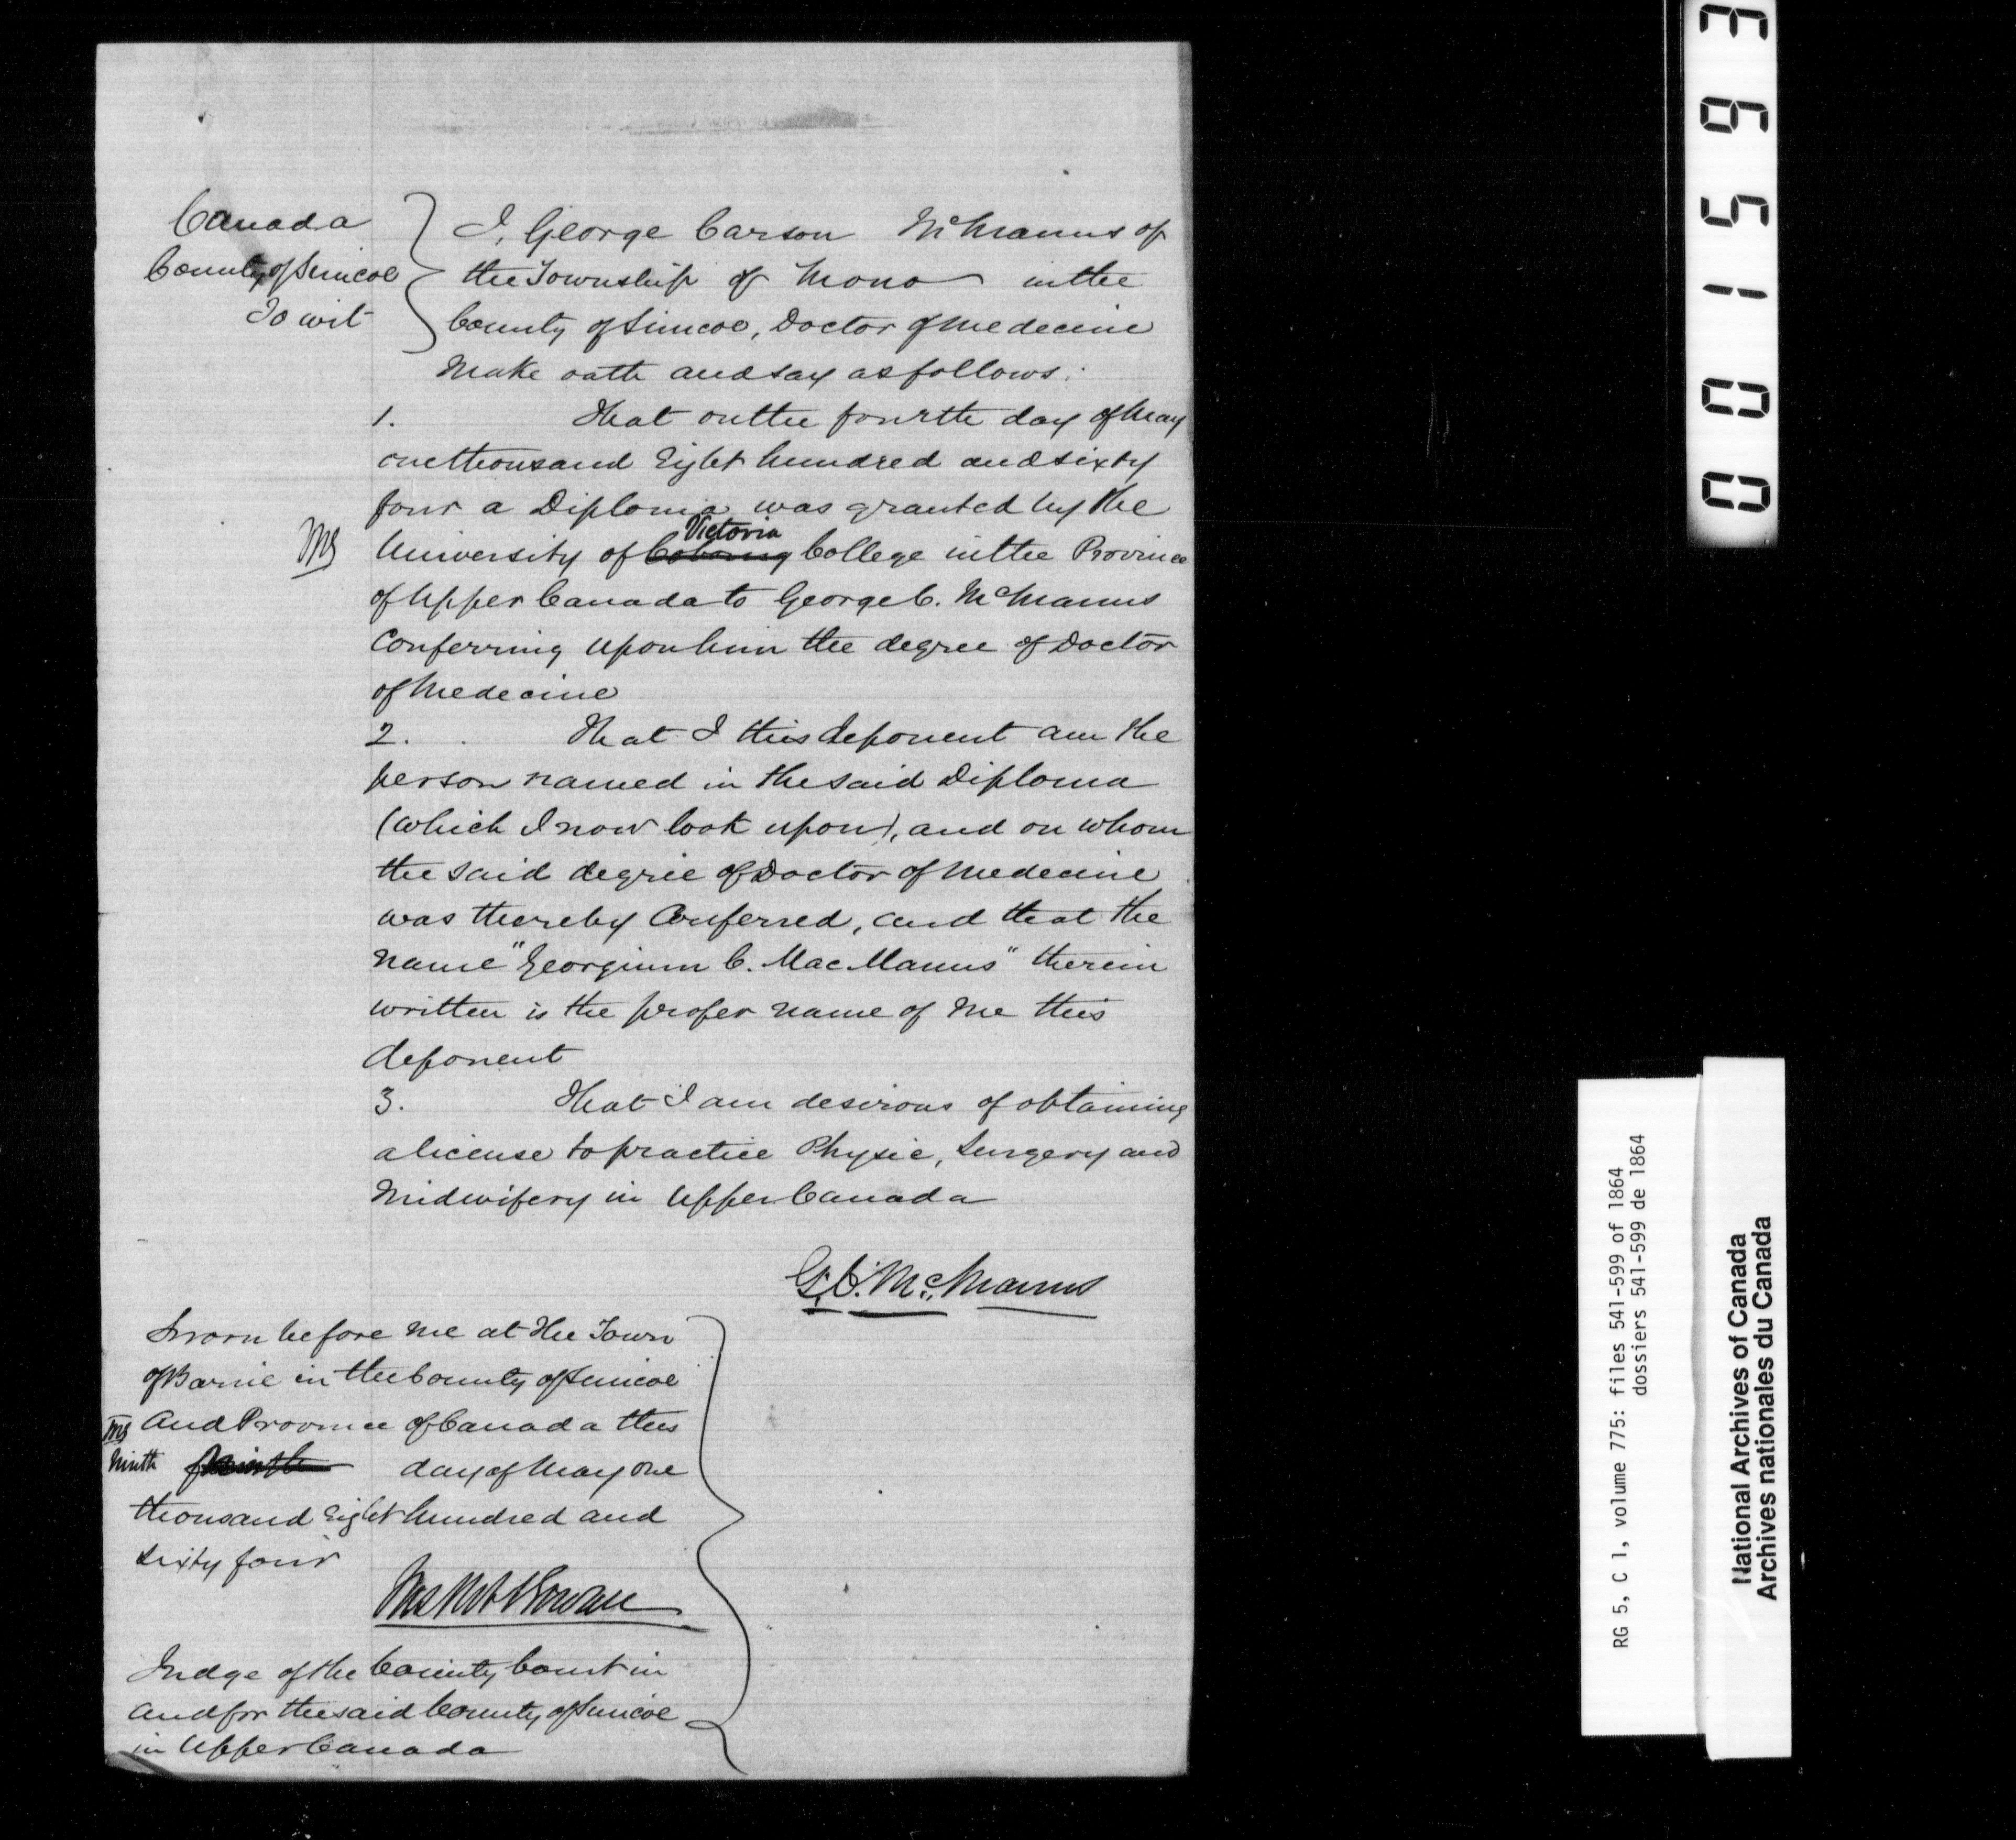 Canada
County of Simcoe
To wit
I, George Carson McManus of
the Township of Mono in the
County of Simcoe, Doctor of Medecine
Make oath and say as follows:
1. That on the fourth day of May
one thousand Eight hundred and sixty
four a Diploma was granted by the
Victoria
University of Cobourg College in the Province
of Upper Canada to George C. McManus
Conferring upon him the degree of Doctor
of Medecine
2. That I this deponent am the
person named in the said Diploma
(which I now look upon), and on whom
the said degree of Doctor of Medecine
was thereby Conferred, and that the
name "Georgium C. MacManus" therein
written is the proper name of me this
deponent
3. That I am desirous of obtaining
a license to practice Physic, Surgery and
Midwifery in Upper Canada
G. C. McManus
Sworn before me at the Town
of Barrie in the County of Simcoe
And Province of Canada this
Ninth day of May one
thousand Eight hundred and
sixty four
Judge of the County Court in
and for the said County of Simcoe
in Upper Canada
001593
RG 5, C 1, volume 775: files 541-599 of 1864
dossiers 541-599 de 1864
National Archives of Canada
Archives nationales du Canada